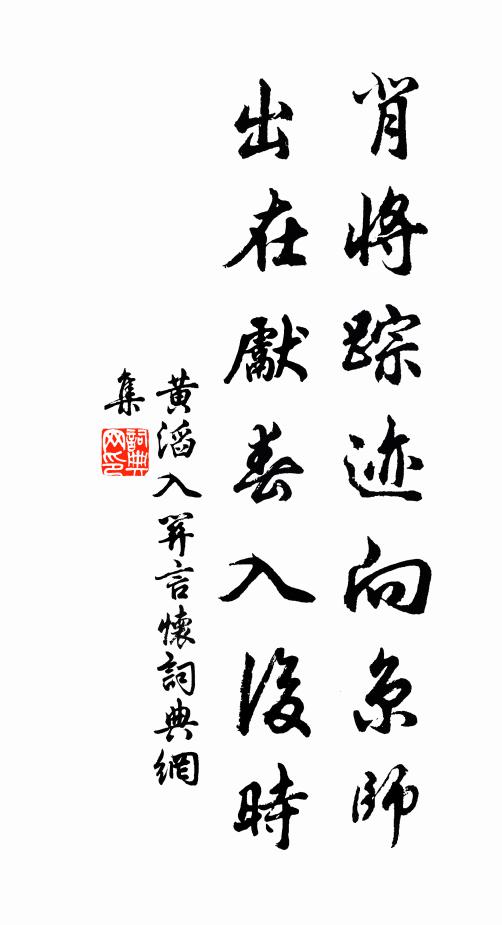 背將踪迹向京師
出在獻春入後時
黄滔入關言懷詞典網
集
詞典网印